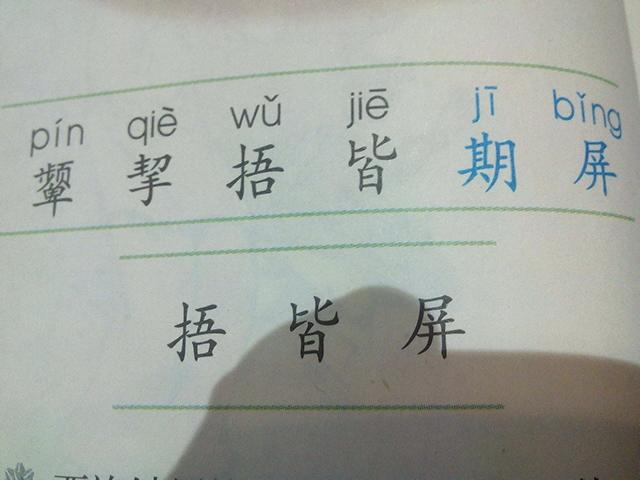 pín qiè wǔ jiē jī bǐng
颦 挈 捂 皆 期 屏
捂 皆 屏